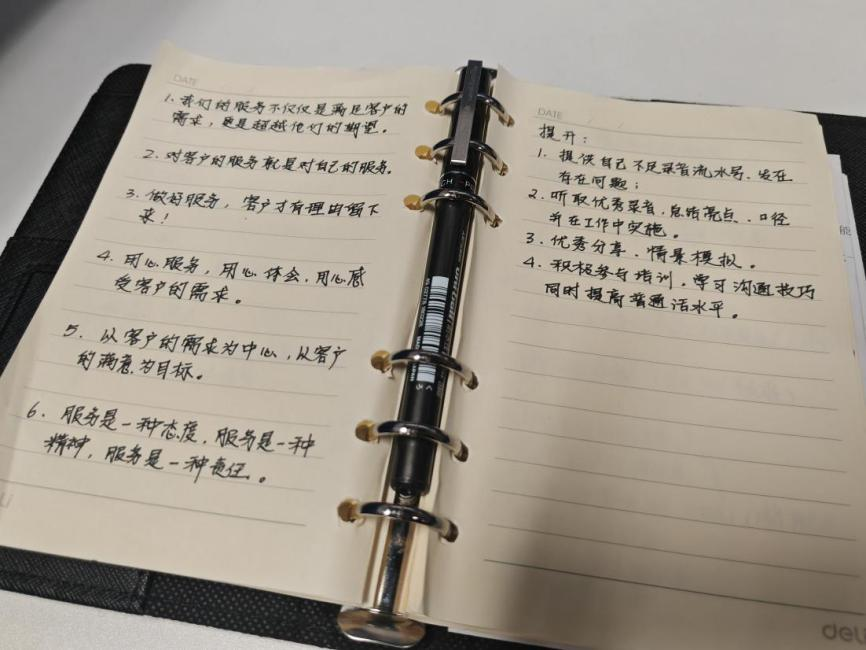 DATE
1. 我们的服务不仅仅是满足客户的
需求，更是超越他们的期望。
2. 对客户的服务就是对自己的服务。
3. 做好服务，客户才有理由留下
来！
4. 用心服务，用心体会，用心感
受客户的需求。
5. 以客户的需求为中心，从客户
的满意为目标。
6. 服务是一种态度，服务是一种
精神，服务是一种责任。
DATE
提升：
1. 提供自己不足录音流水号、发在
存在问题；
2. 听取优秀录音，总结亮点、口径
并在工作中实施。
3. 优秀分享、情景模拟。
4. 积极参与培训，学习沟通技巧
同时提高普通话水平。
能
deli